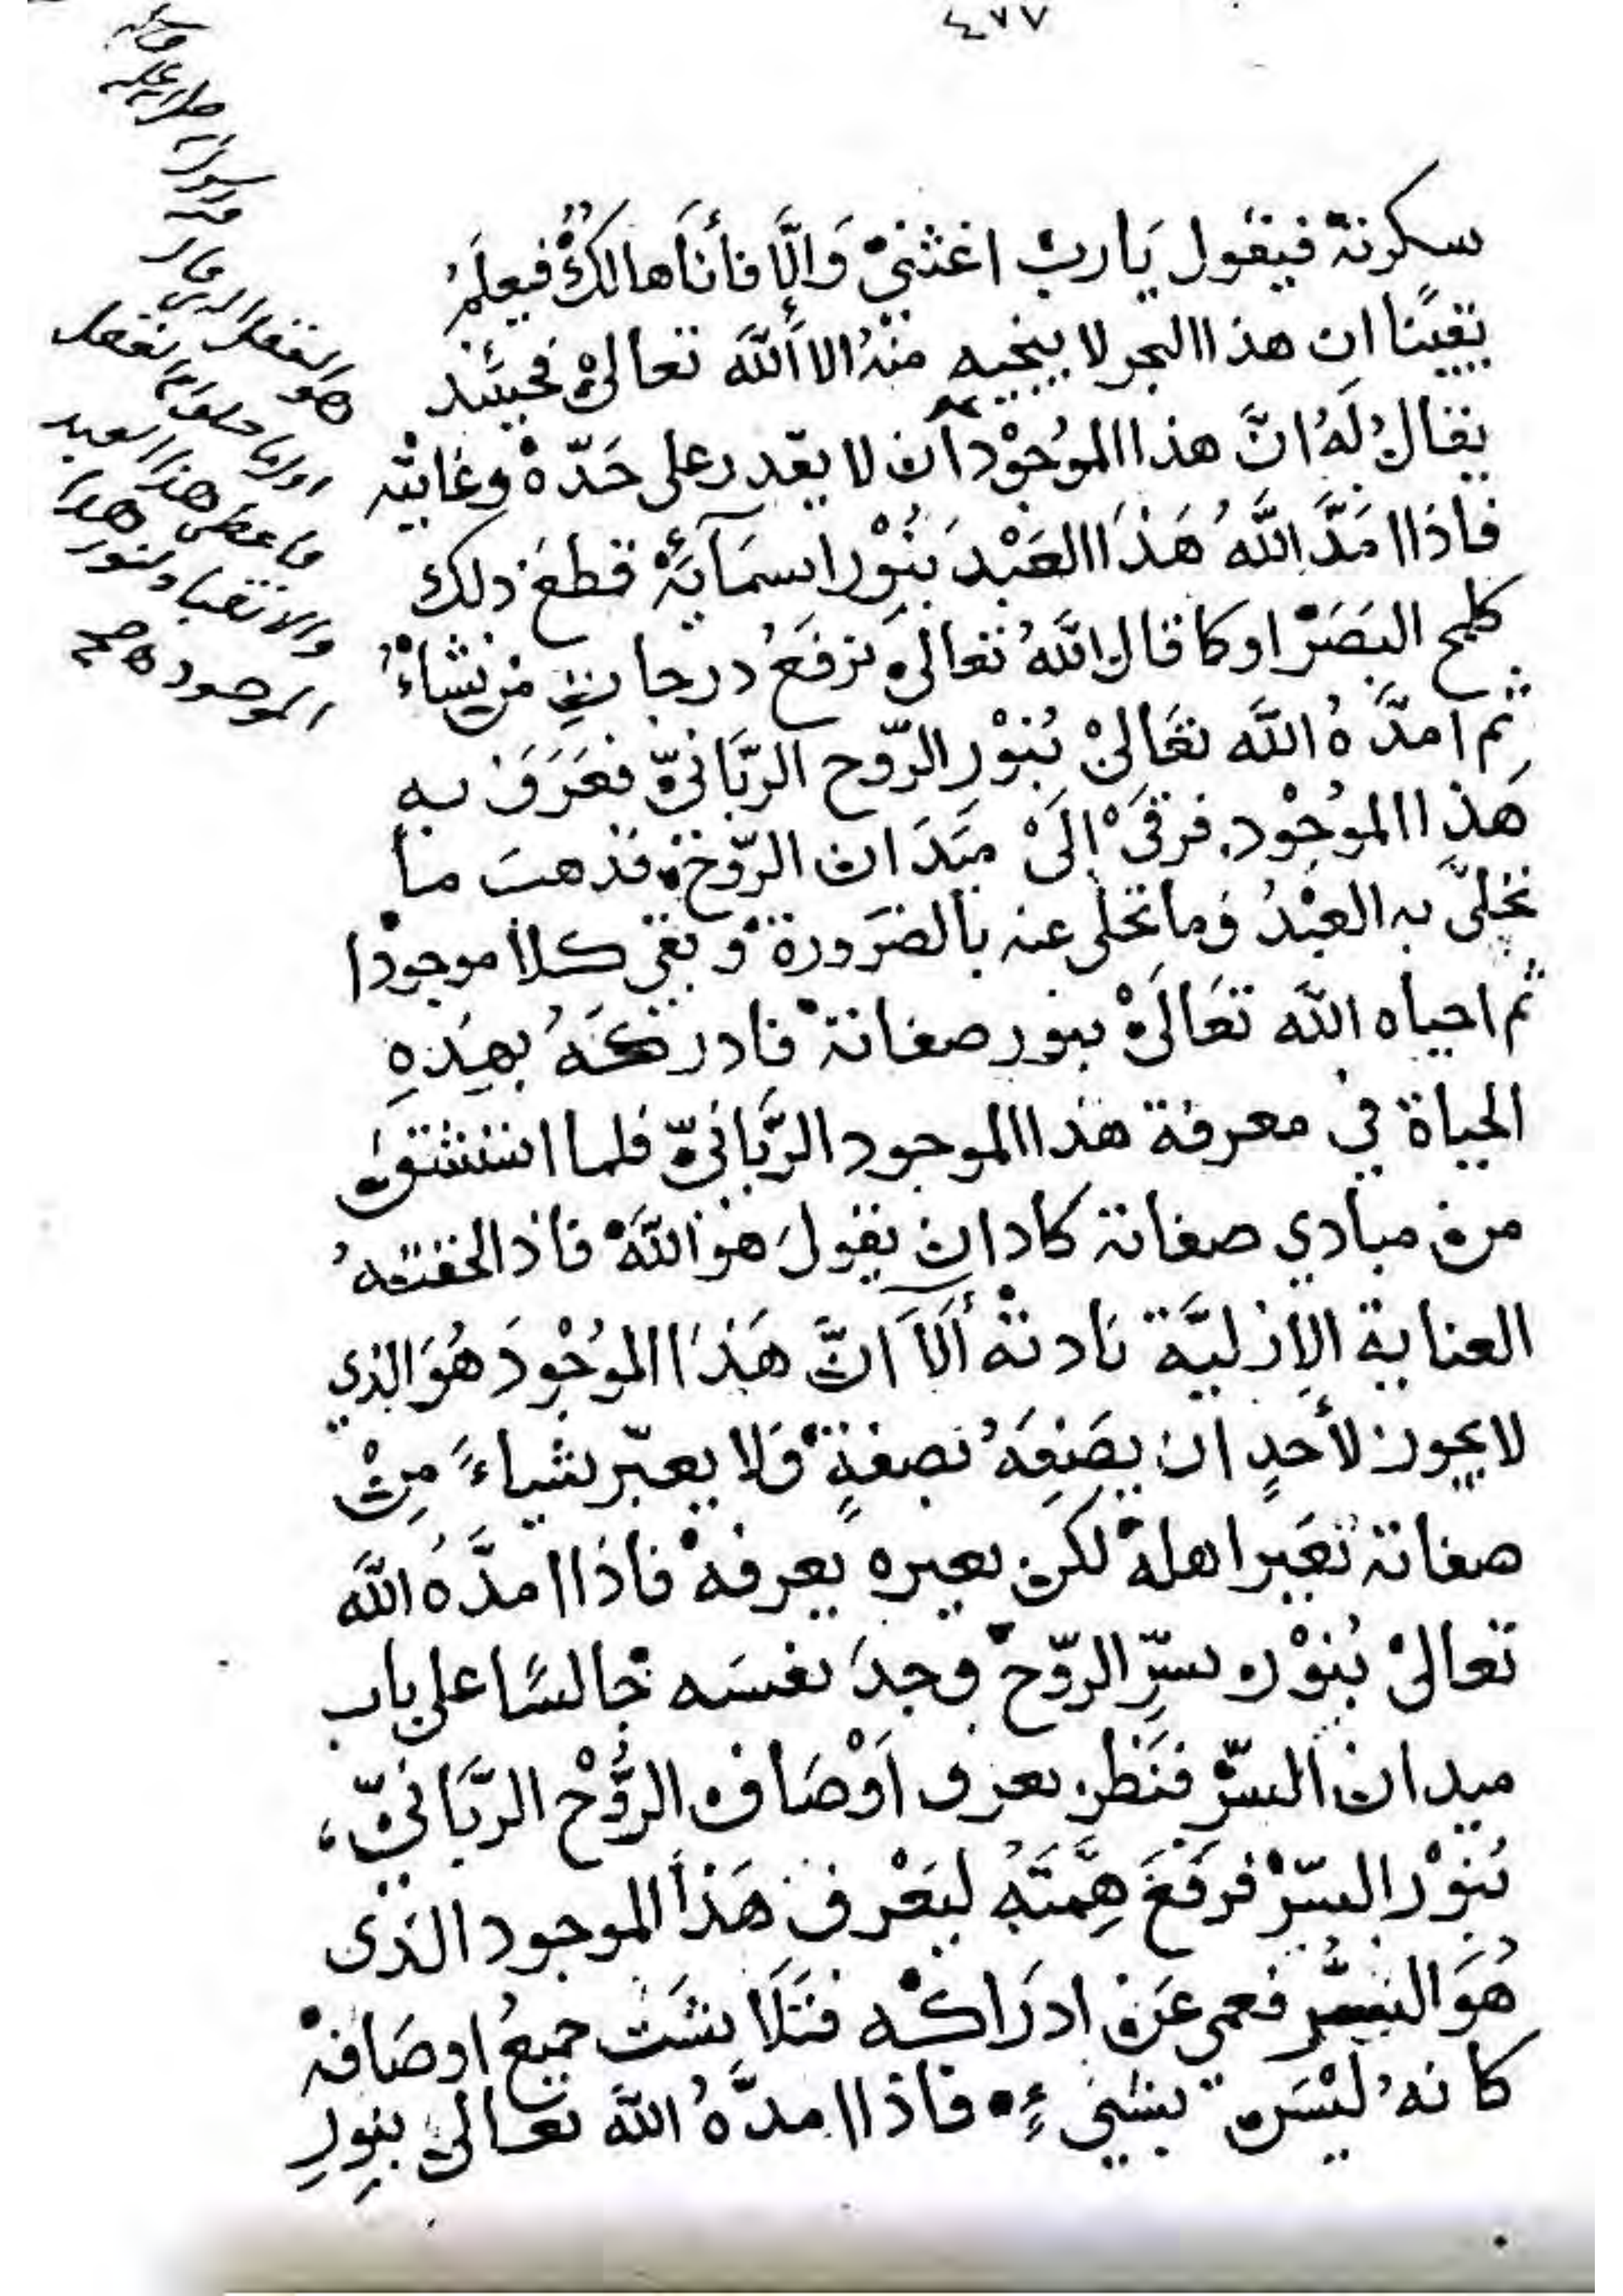 ٤٧٧
سكرته فيقول يَا ربّ اغثنيْ وَالَّا فأنَا هالكٌ فيعلَمُ
يقينًا ان هذا البحر لا ينجيه منهُ الا اللّٰه تعالىْ فحينئذ
يقالُ لَهُ انَّ هذا الموُجوْد آن لا يقدر على حَدّهْ وغايته
فاذا امَدَّ اللَّهُ هَذَا العَبْدَ بنُوْر اسمَآئهْ قطعَ ذلك
كلمح البَصَرْ او كما قال اللَّهُ تعالىْ نرفَعُ درجاتٍ من نشاءْ
ثم امدَّهُ اللَّه تعَالىْ بُنوْر الرّوح الربَّانىّ فعَرَفَ به
هَذا الموُجوْد فرقىَْ إلَىْ ميَدَان الرّوحْ فذهبَ ما
تخلىَّ به العبْدُ وما تخلى عنه بالضرَورةْ وبقي كلا موجودا
ثم احياه اللَّه تعَالَىْ بنور صفاتهْ فادركَهُ بهذهِ
الحياة في معرفة هذا الموجود الربَّانىّ فلما استنشق
من مبادي صفاته كاد ان يقولَ هو اللَّهْ فاذا لحقتهُ
العناية الازليَّة نادتهْ ألَاَ انَّ هَذَا الموُجْودَ هُوَ الذي
لا يجوز لأحدٍ ان يصَفِهَُ بصفةٍْ وَلا يعبّر بشياءً مِنْ
صفاته بغَير اهلهْ لكن بغيره يعرفهْ فاذا امدَّهُ اللَّه
تعالىْ بُنوْره بسرِّ الرّوحْ وجدَ نفسَه جالسًا على باب
ميدان السرّ فنَظر يعرف اَوْصَاف الرُّوْح الربَّانىّ،
بُنوْر السّرْ فرفعَ هِمَّتَهُ ليَعْرف هَذَا الموجود الذى
هُوَ السّر فعمي عَنْ ادرَاكه فتَلَاشَت جميعُ اوصَافهْ
كانهُ ليْسَ بشيءٍ فاذا امدَّهُ اللَّه تعالىْ بنورِ
صلى الله عليه
رسول الله
هو العقل الذي قال
فاعطى هذا العبد
والانقياد لنور هذا
الموجود صح